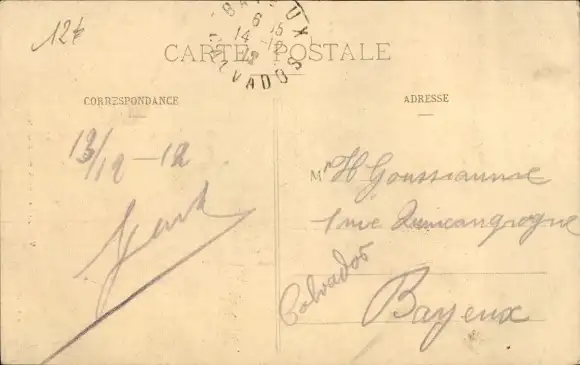 12f
BAYEUX
6 15
14 -12
12
CALVADOS
CARTE POSTALE
CORRESPONDANCE
ADRESSE
13/12 - 12
Mr H Goussiaume
1 rue Quincangrogne
Calvados
Bayeux